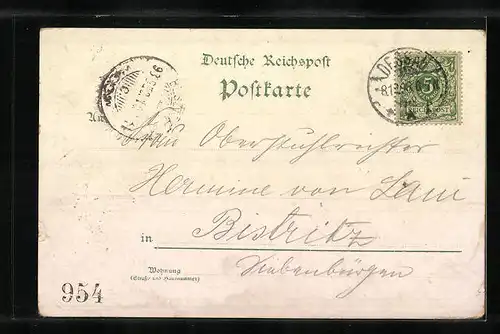 Deutsche Reichspost
Postkarte
DESSAU
8.12.96
5
An
Frau Oberstuhlrichter
Hermine von Lani
in Bistritz
Siebenbürgen
Wohnung
(Straße und Hausnummer)
954